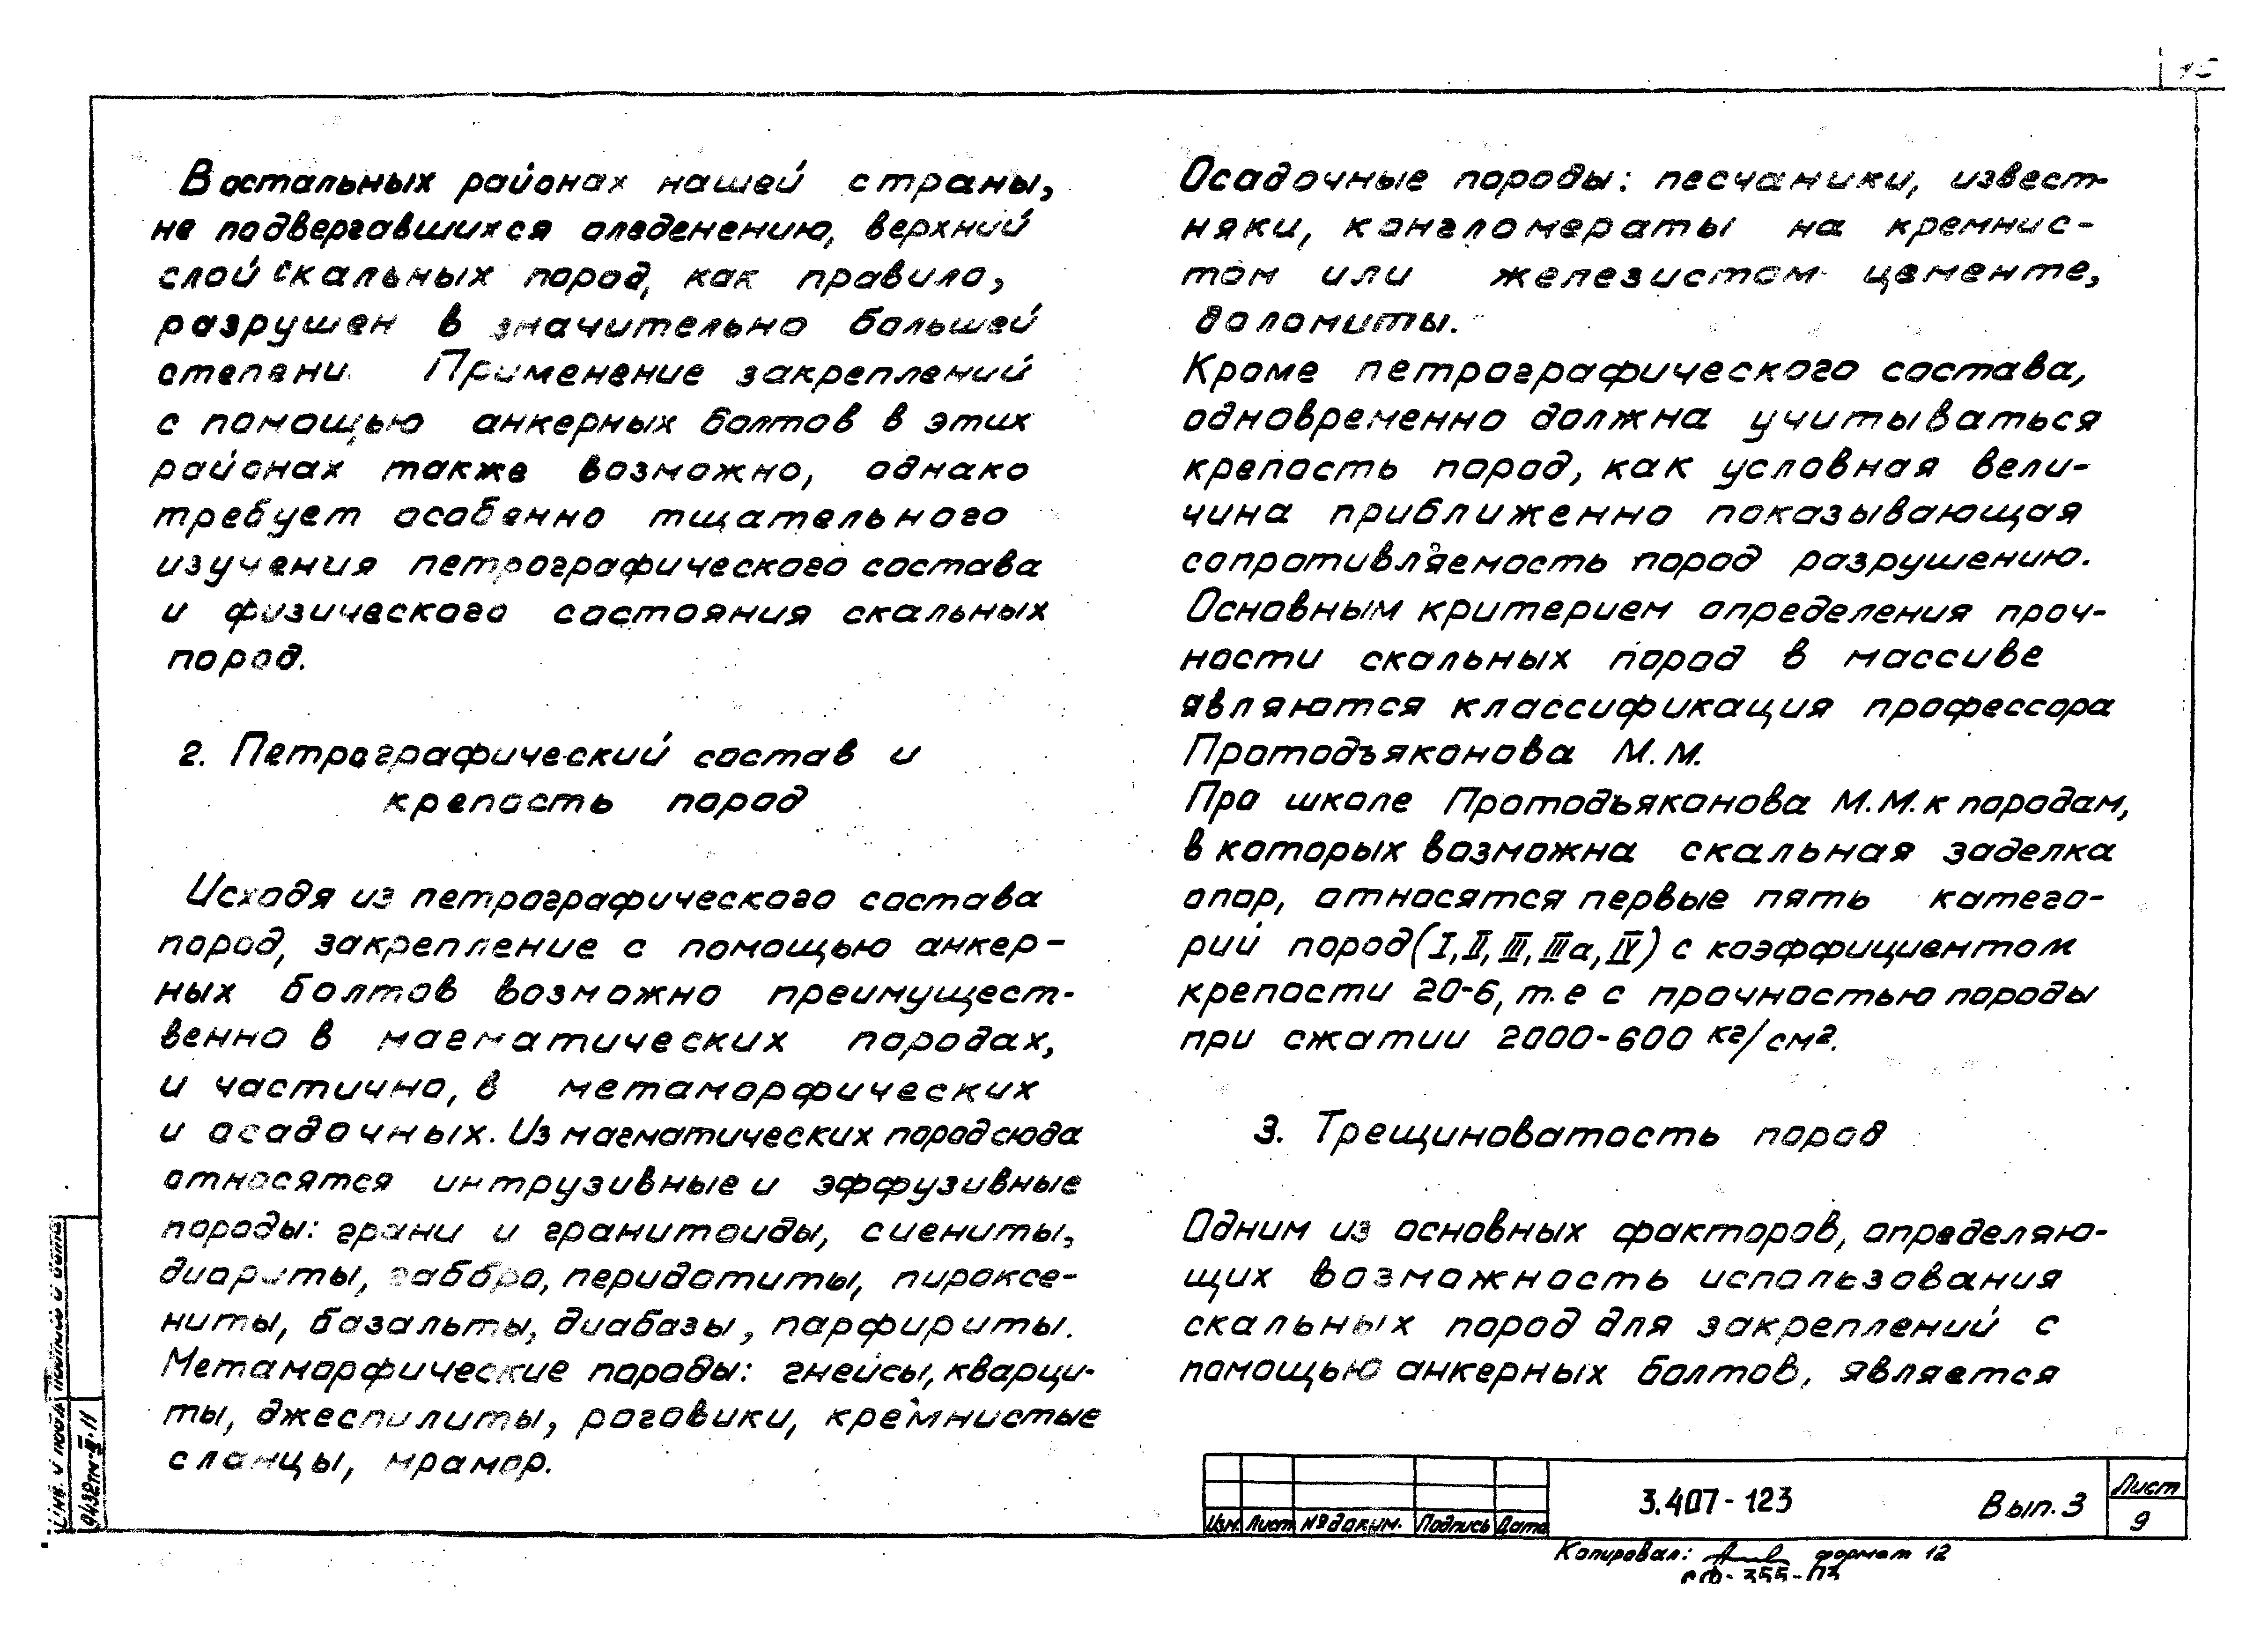 В остальных районах нашей страны,
не подвергавшихся оледенению, верхний
слой скальных пород, как правило,
разрушен в значительно большей
степени. Применение закреплений
с помощью анкерных болтов в этих
районах также возможно, однако
требует особенно тщательного
изучения петрографического состава
и физического состояния скальных
пород.
2. Петрографический состав и
крепость пород
Исходя из петрографического состава
пород, закрепление с помощью анкер-
ных болтов возможно преимущест-
венно в магматических породах,
и частично, в метаморфических
и осадочных. Из магматических пород сюда
относятся интрузивные и эффузивные
породы: грани и гранитоиды, сиениты,
диориты, габбро, перидотиты, пироксе-
ниты, базальты, диабазы, парфириты.
Метаморфические породы: гнейсы, кварци-
ты, джеспилиты, роговики, кремнистые
сланцы, мрамор.
Осадочные породы: песчаники, извест-
няки, конгломераты на кремнис-
том или железистом цементе,
доломиты.
Кроме петрографического состава,
одновременно должна учитываться
крепость пород, как условная вели-
чина приближенно показывающая
сопротивляемость пород разрушению.
Основным критерием определения проч-
ности скальных пород в массиве
являются классификация профессора
Протодъяконова М.М.
Про школе Протодъяконова М.М. к породам,
в которых возможна скальная заделка
опор, относятся первые пять катего-
рий пород (I, II, III, IIIа, IV) с коэффициентом
крепости 20-6, т.е с прочностью породы
при сжатии 2000-600 кг/см².
3. Трещиноватость пород
Одним из основных факторов, определяю-
щих возможность использования
скальных пород для закреплений с
помощью анкерных болтов, является
Изм. Лист № докум. Подпись Дата
3.407-123 Вып. 3
Лист
9
Копировал: формат 12
СФ-355-03
Инв. № подл. Подпись и дата
9432тм-II-11